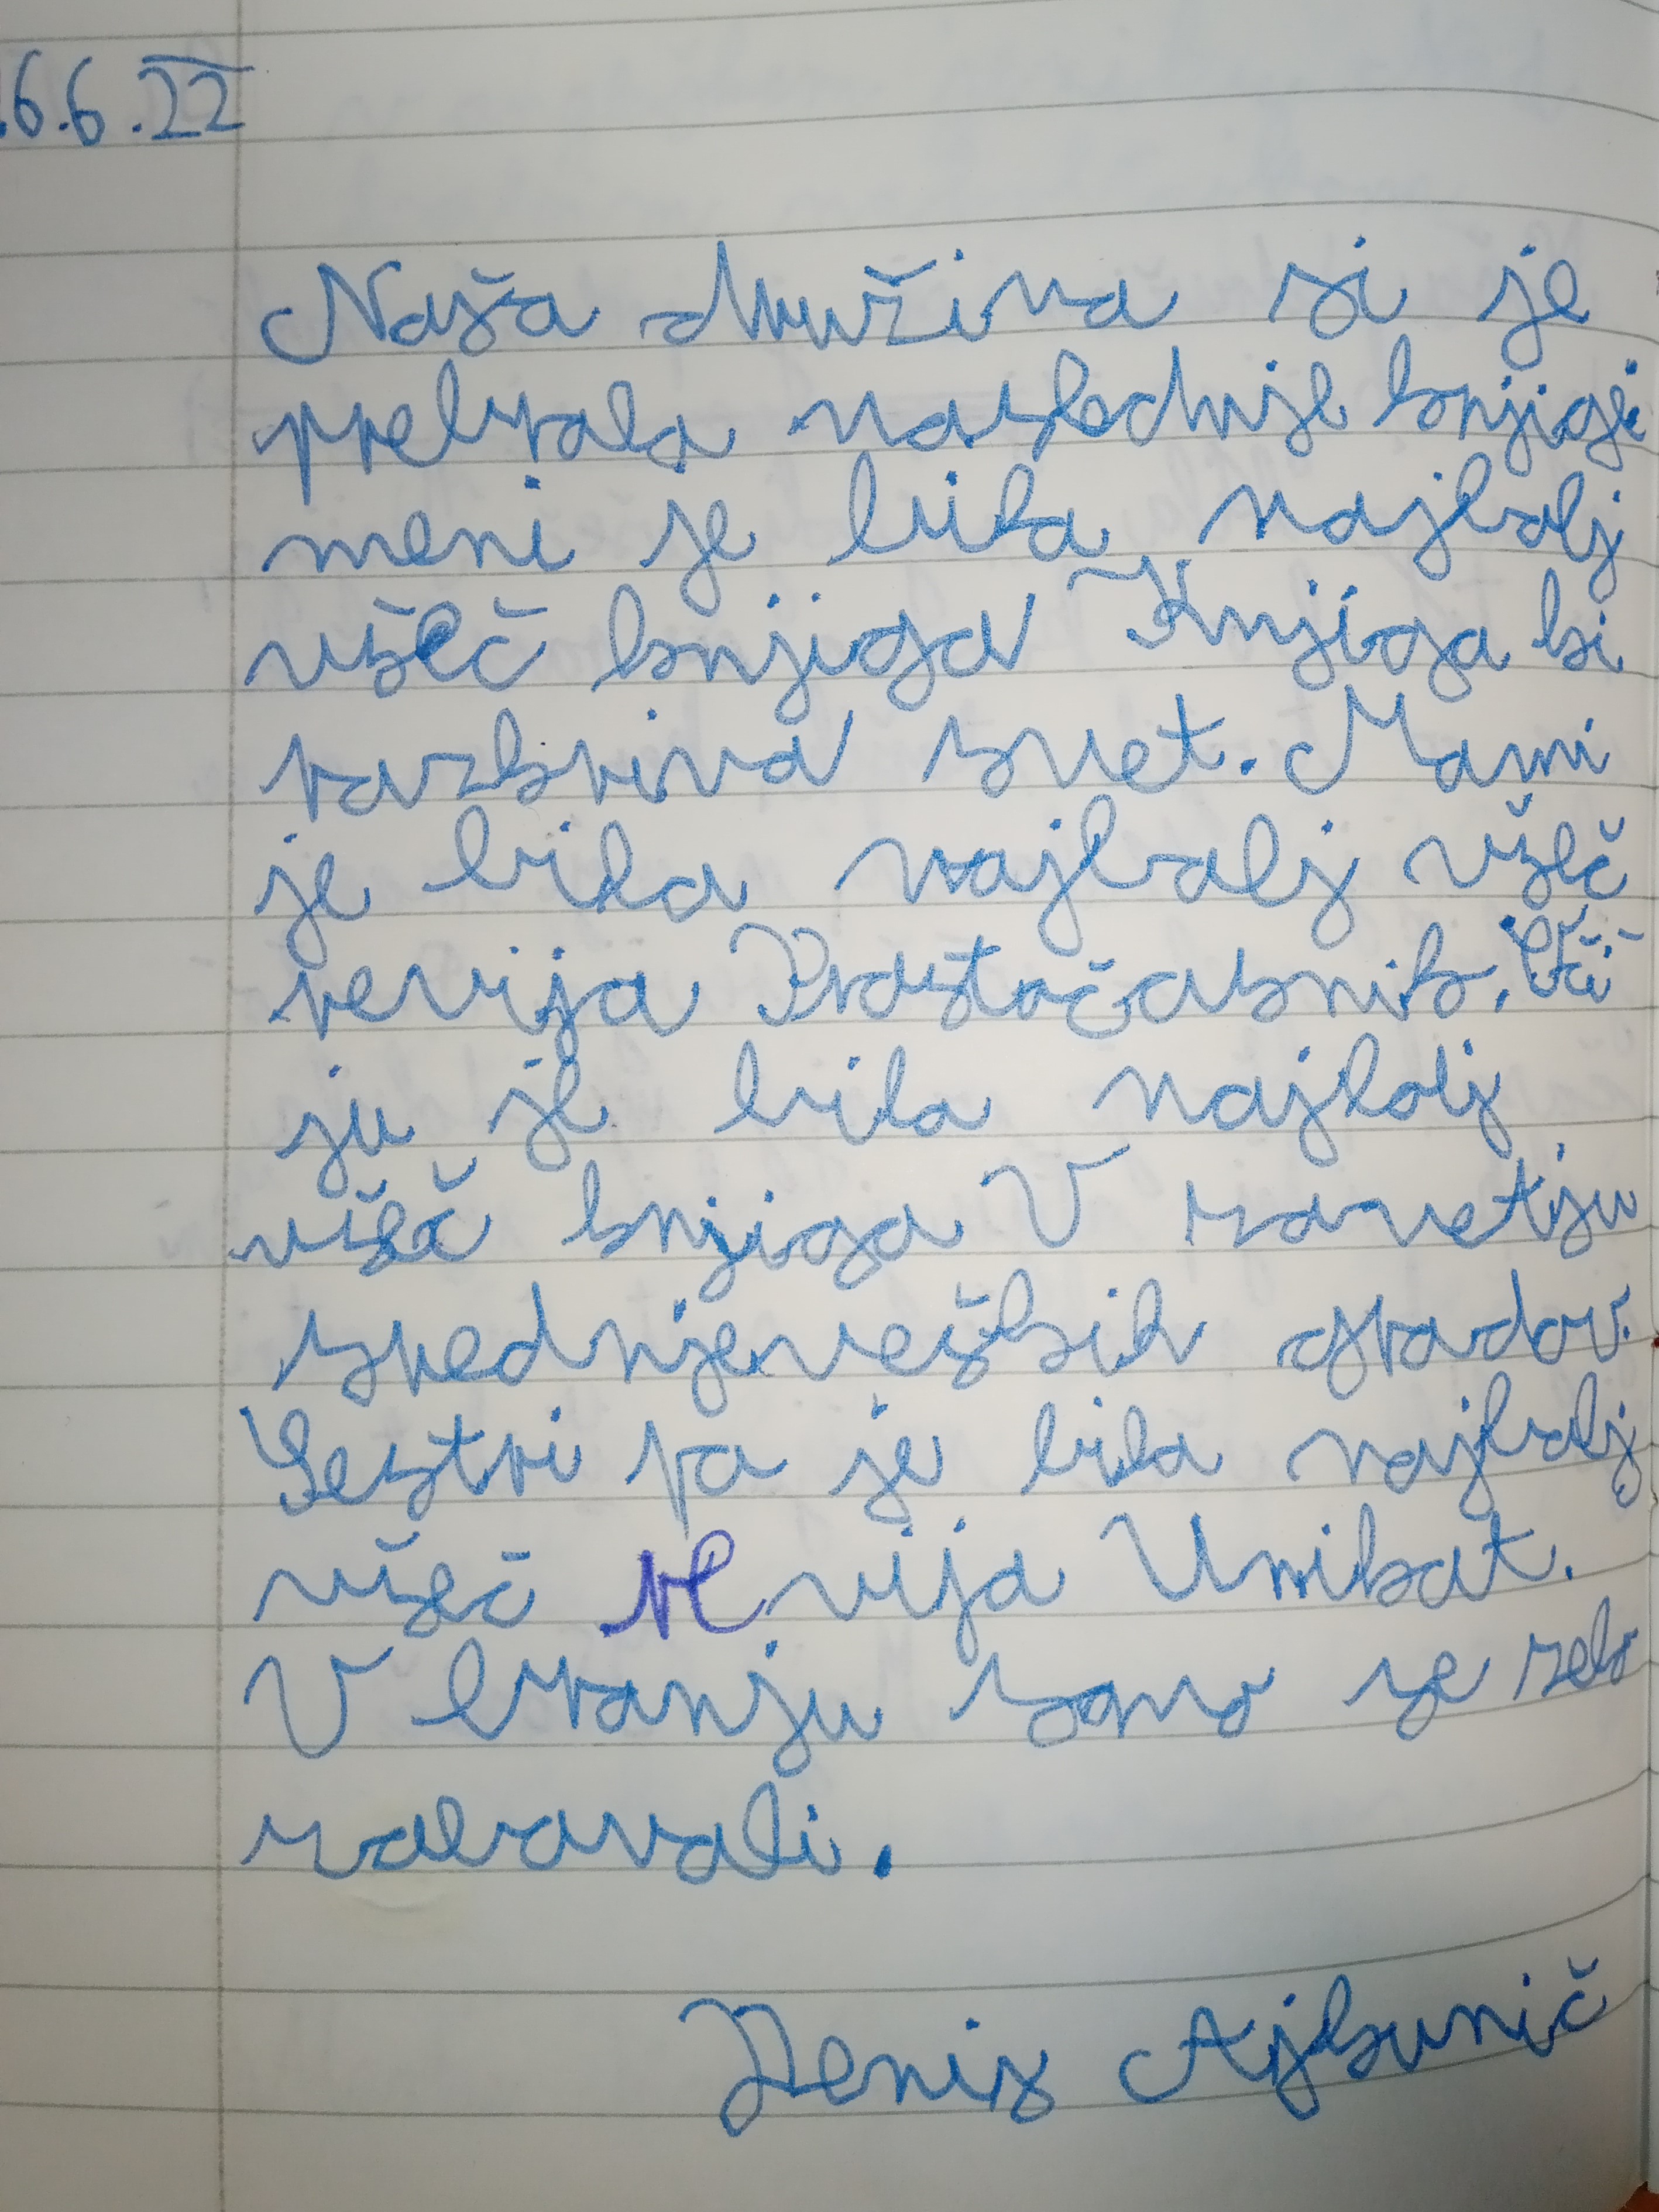 .6.6.22
Naša družina si je
prebrala naslednje knjige:
meni je bila najbolj
všeč knjiga Knjiga ki
razkriva svet. Mami
je bila najbolj všeč
revija Prostočasnik. Oči
ju je bila najbolj
všeč knjiga V zavetju
srednjeveških gradov.
Sestri pa je bila najbolj
všeč revija Unikat.
V branju smo se zelo
zabavali.
Denis Ajkunič